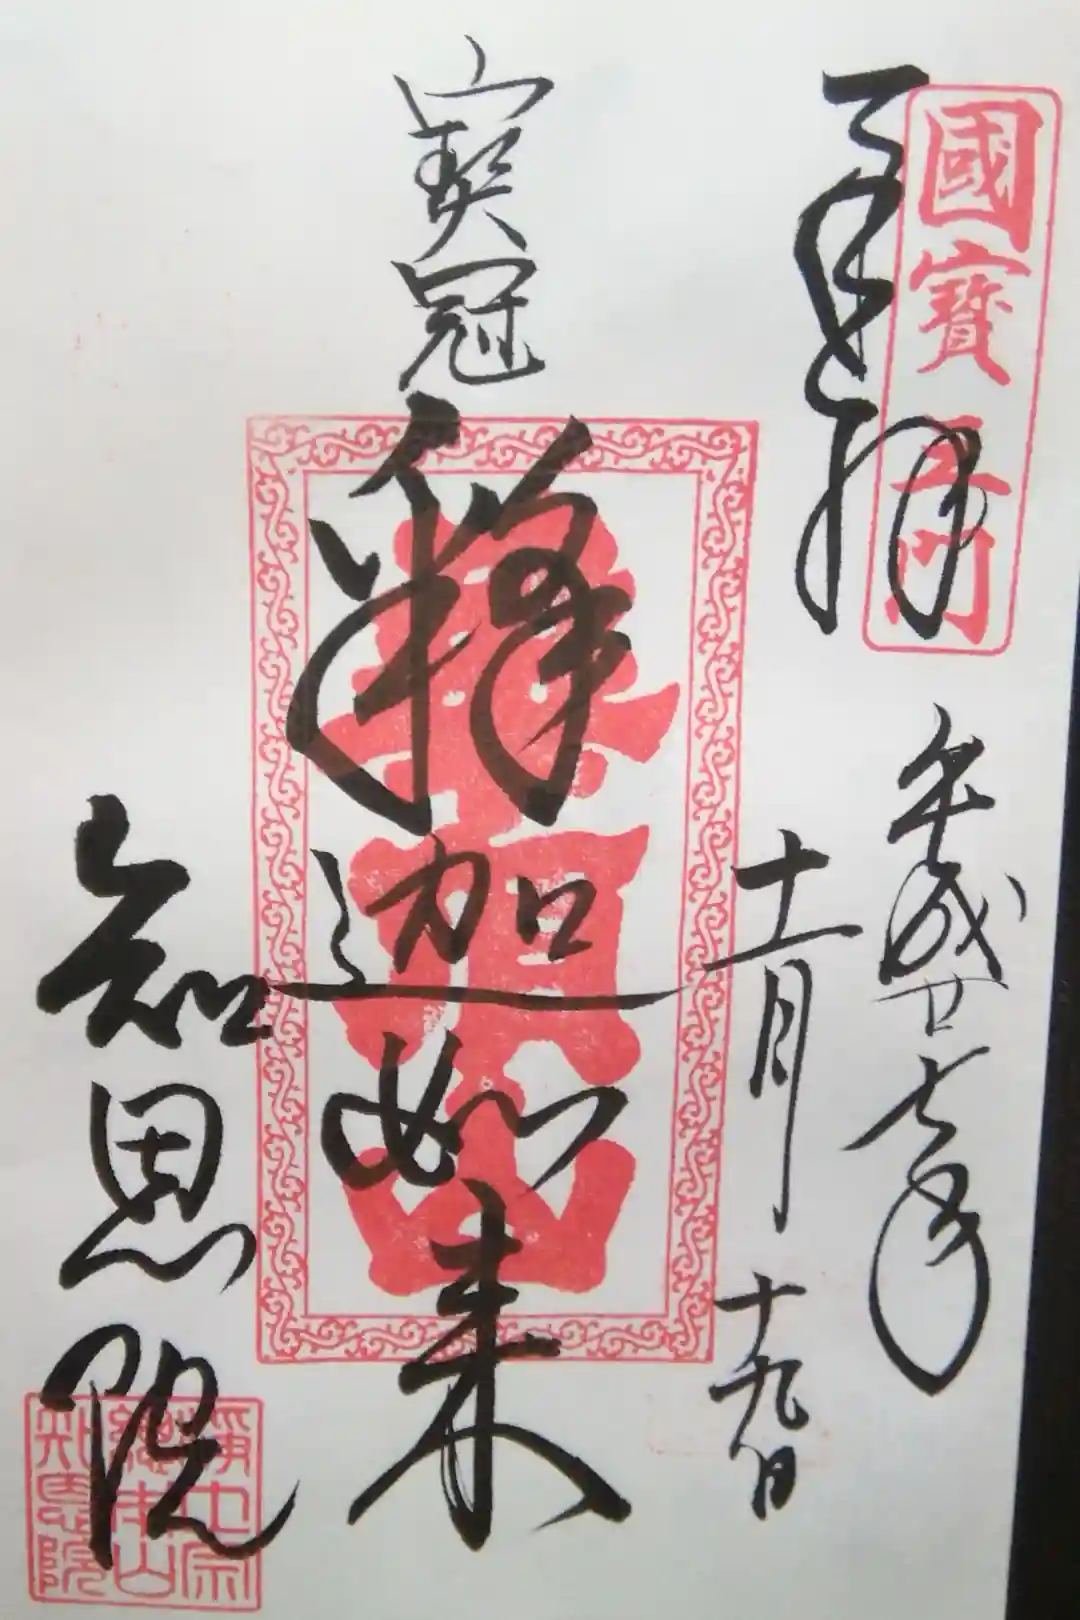 奉拝
國寶三門
平成廿七年
十一月十九日
寳冠
釋迦如来
華頂山
知恩院
浄土宗
總本山
知恩院